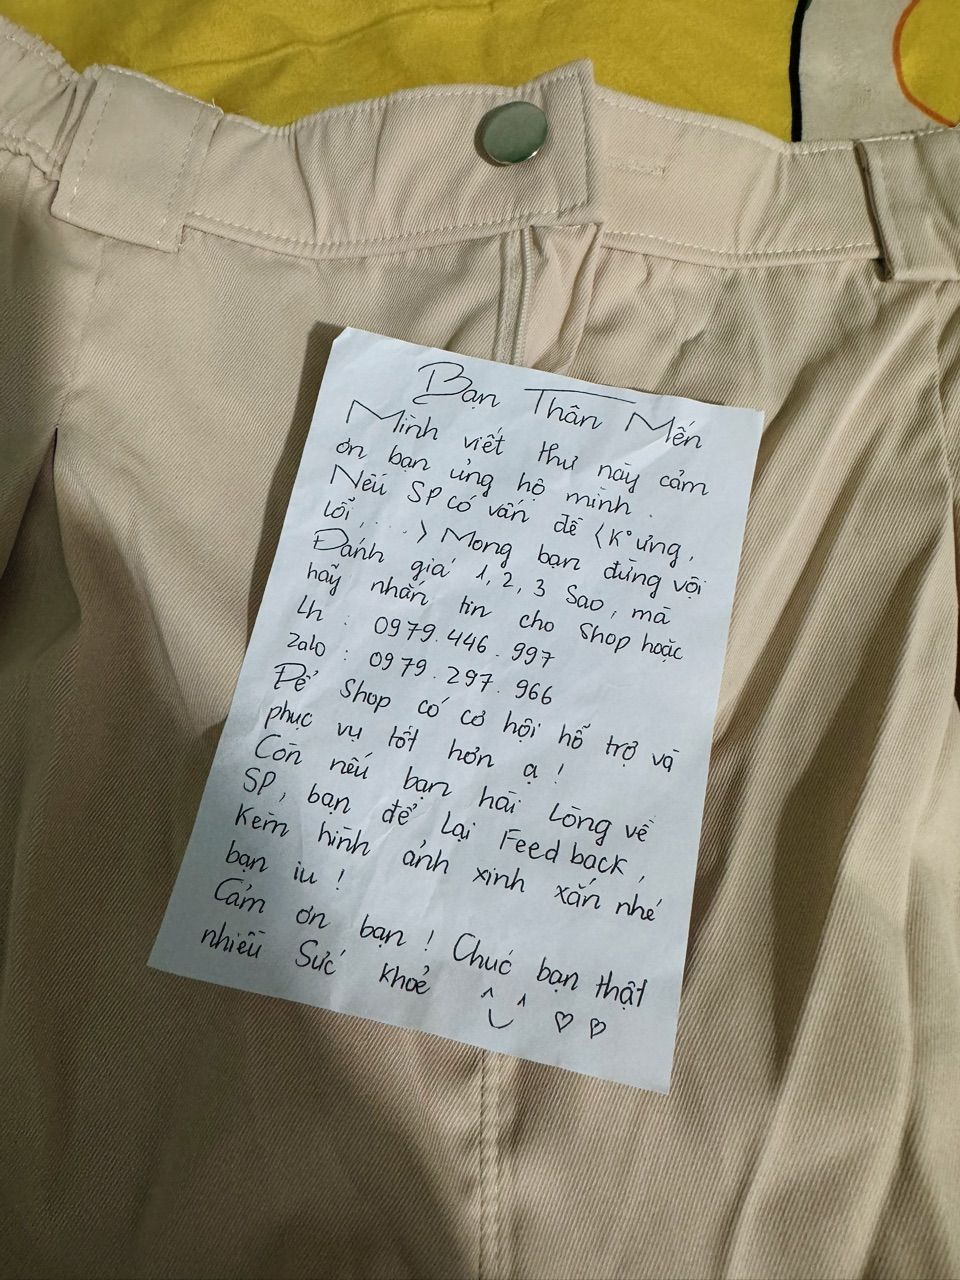 Bạn Thân Mến
Mình viết thư này cảm
ơn bạn ủng hộ mình.
Nếu SP có vấn đề (K° ưng,
lỗi,...) Mong bạn đừng vội
Đánh giá 1, 2, 3 Sao, mà
hãy nhắn tin cho Shop hoặc
Lh : 0979.446.997
Zalo : 0979.297.966
Để Shop có cơ hội hỗ trợ và
phục vụ tốt hơn ạ !
Còn nếu bạn hài lòng về
SP, bạn để lại Feedback,
kèm hình ảnh xinh xắn nhé
bạn iu !
Cảm ơn bạn ! Chúc bạn thật
nhiều Sức khoẻ